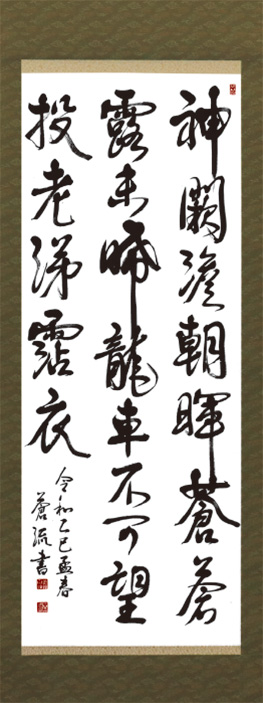 神闕澹朝暉蒼蒼
露未晞龍車不可望
投老涕霑衣
令和乙巳孟春
蒼流書